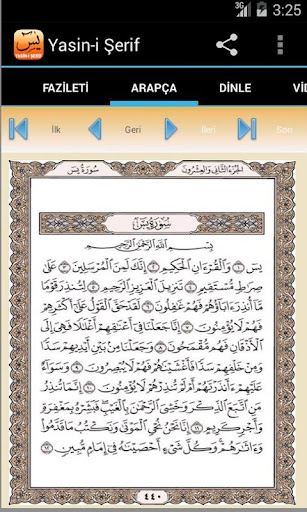 3:25
يس
YASİN-İ ŞERİF
Yasin-i Şerif
FAZİLETİ
ARAPÇA
DİNLE
VİD
İlk
Geri
İleri
Son
سورة يس
الجزء الثاني والعشرون
سورة يس
بسم الله الرحمن الرحيم
يس ١ والقرءان الحكيم ٢ إنك لمن المرسلين ٣ على
صراط مستقيم ٤ تنزيل العزيز الرحيم ٥ لتنذر قوما
ما أنذر ءاباؤهم فهم غافلون ٦ لقد حق القول على أكثرهم
فهم لا يؤمنون ٧ إنا جعلنا في أعناقهم أغلالا فهي إلى
الأذقان فهم مقمحون ٨ وجعلنا من بين أيديهم سدا
ومن خلفهم سدا فأغشيناهم فهم لا يبصرون ٩ وسواء
عليهم ءأنذرتهم أم لم تنذرهم لا يؤمنون ١٠ إنما تنذر
من اتبع الذكر وخشي الرحمن بالغيب فبشره بمغفرة
وأجر كريم ١١ إنا نحن نحي الموتى ونكتب ما قدموا
وءاثارهم وكل شيء أحصيناه في إمام مبين ١٢
٤٤٠